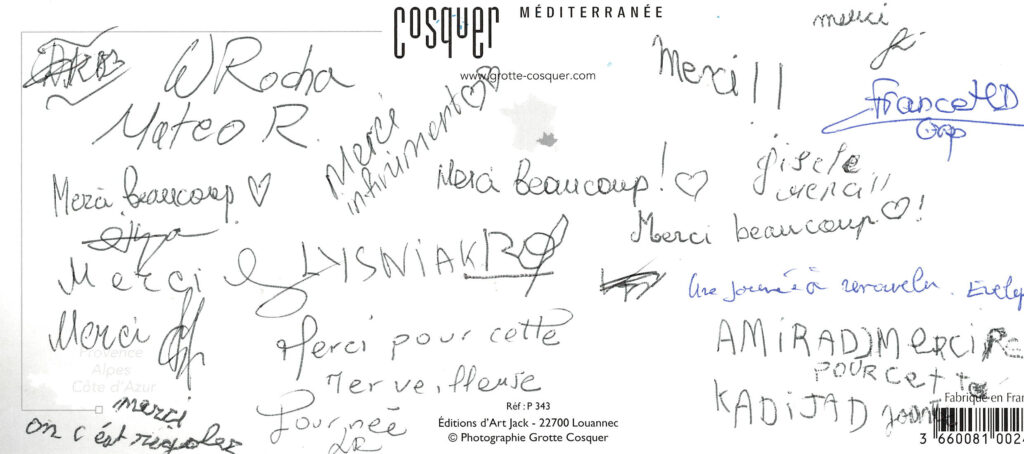 cosquer MÉDITERRANÉE
www.grotte-cosquer.com
merci
Merci !!
FranceHD
Gap
W Rocha
Mateo R.
Merci
infiniment
Merci beaucoup
Merci beaucoup !
gisele
merci !!
Merci beaucoup !
Merci
LISNIAK
Une journée à renouveler. Evelyn
Merci
Provence
Alpes
Côte d'Azur
Merci pour cette
merveilleuse
Journée
AMiRADJ MERCi
POUR CETTE
KADiJAD
merci
on c'est rigolez
Réf : P 343
Éditions d'Art Jack - 22700 Louannec
© Photographie Grotte Cosquer
Fabriqué en Fran
3 660081 002